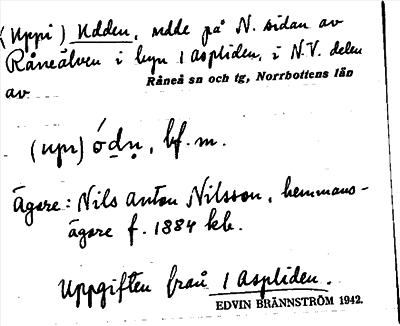 (Uppi) Udden, udde på N. sidan av
Råneälven i byn 1 Aspliden, i N.V. delen
av Råneå sn och tg, Norrbottens län
(upi) ó̱dṇ, bf. m.
Ägare: Nils Anton Nilsson, hemmans-
ägare f. 1884 kb.
Uppgiften från 1 Aspliden.
EDVIN BRÄNNSTRÖM 1942.